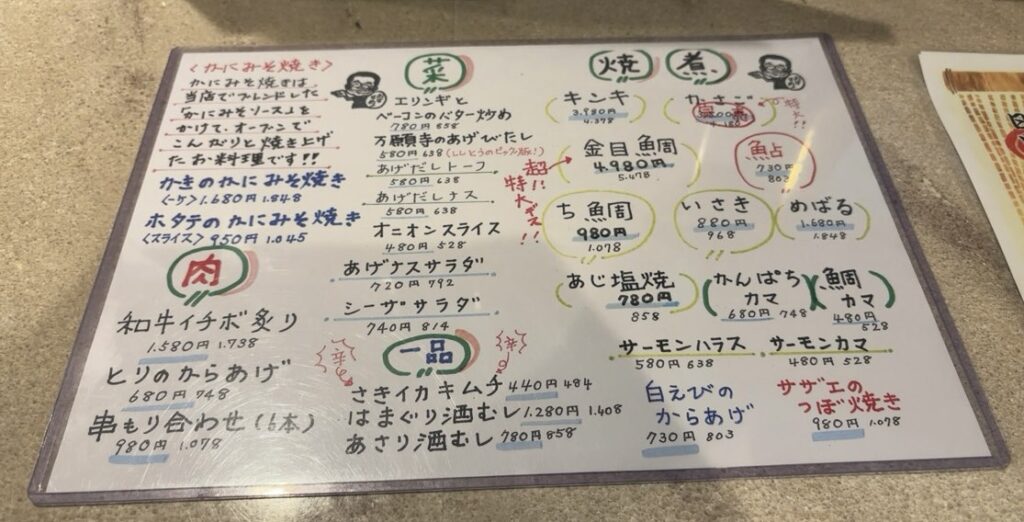 〈かにみそ焼き〉
かにみそ焼きは
当店でブレンドした
「かにみそソース」を
かけて、オーブンで
こんがりと焼き上げ
たお料理です!!
かきのかにみそ焼き
〈一ケ〉1.680円 1.848
ホタテのかにみそ焼き
〈スライス〉950円 1.045
肉
和牛イチボ炙り
1.580円 1.738
とりのからあげ
680円 748
串もり合わせ(6本)
980円 1.078
菜
エリンギと
ベーコンのバター炒め
780円 858
万願寺のあげびたし
580円 638(ししとうのビッグ版!)
あげだしトーフ
580円 638
あげだしナス
580円 638
オニオンスライス
480円 528
あげナスサラダ
720円 792
シーザサラダ
740円 814
一品
辛
辛
さきイカキムチ 440円 484
はまぐり酒むし 1.280円 1.408
あさり酒むし 780円 858
焼
煮
キンキ
3.980円
4.378
かさご
特大!!
超!!
特大デス!!
金目鯛
4.980円
5.478
鮎
730円
803
ち鯛
980円
1.078
いさき
880円
968
めばる
1.680円
1.848
あじ塩焼
780円
858
かんぱち
カマ
680円 748
鯛
カマ
480円
528
サーモンハラス
580円 638
サーモンカマ
480円 528
白えびの
からあげ
730円 803
サザエの
つぼ焼き
980円 1.078